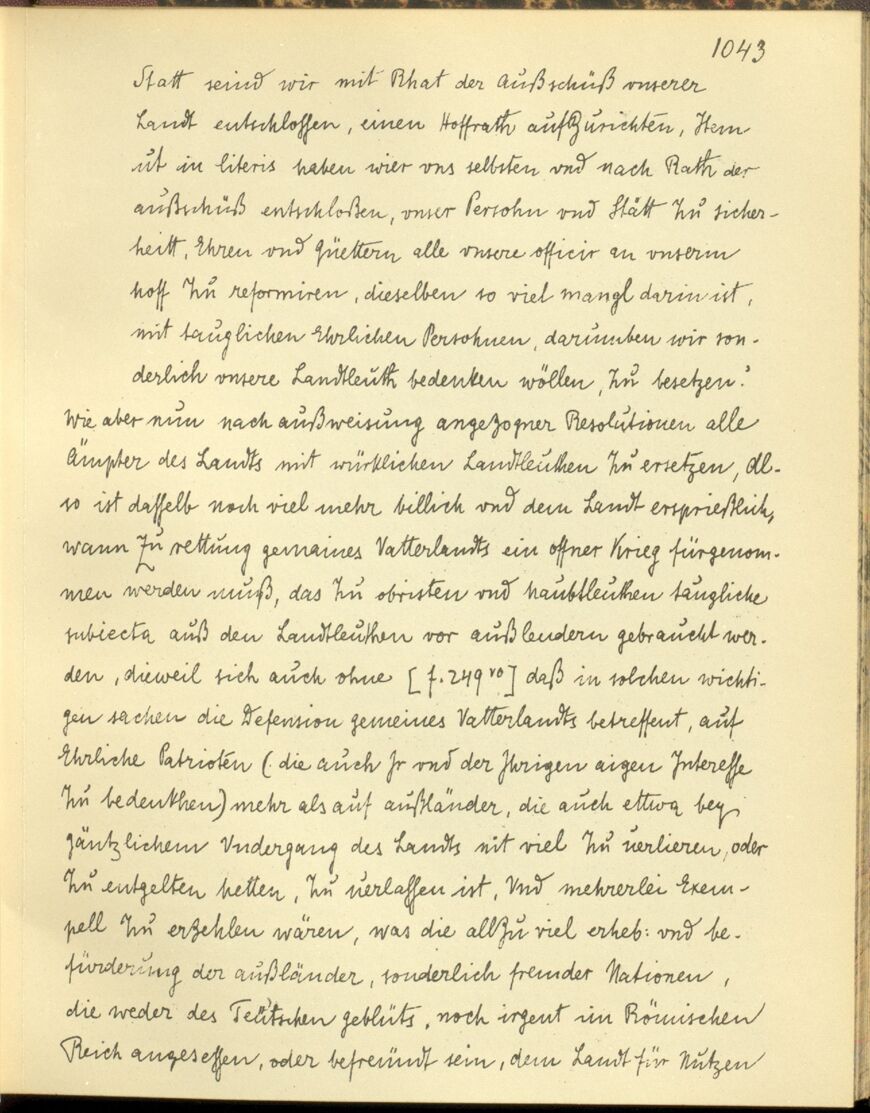 1043
Statt seind wir mit Rhat der Außschüß vnserer
Landt entschlossen, einen Hoffrath aufZurichten, Item
ut in literis haben wier vns selbsten vnd nach Rath der
außschüß entschloßen, vnser Persohn vnd Stätt Zu sicher-
heitt, Ehren vnd güettern alle vnsere officir an vnserm
hoff Zu reformiren, dieselben so viel mangl darin ist,
mit tauglichen Ehrlichen Persohnen, darumben wir son-
derlich vnsere Landtleuth bedenken wöllen, Zu besetzen.'
Wie aber nun nach außweisung angezogner Resolutionen alle
Ämpter des Landts mit würklichen Landtleuthen Zu ersetzen, Al-
so ist dasselb noch viel mehr billich vnd dem Landt ersprießlich,
wann Zu rettung gemaines Vatterlandts ein offner Krieg fürgenom-
men werden muß, das Zu obristen vnd haubtleuthen taugliche
subiecta auß den Landtleuthen vor außlendern gebraucht wer-
den, dieweil sich auch ohne [f. 249 vo] daß in solchen wichti-
gen sachen die Defension gemeines Vatterlandts betreffent, auf
Ehrliche Patrioten (die auch Jr vnd der Jhrigen aigen Interesse
Zu bedenkhen) mehr als auf außländer, die auch ettwa bey
gäntzlichem Vndergang des Landts nit viel Zu uerlieren, oder
Zu entgelten hetten, Zu uerlassen ist, Vnd mehrerlei Exem-
pell Zu erzehlen wären, was die allZu viel erheb: vnd be-
fürderung der außländer, sonderlich frembder Nationen,
die weder des Teütschen geblüts, noch irgent im Römischen
Reich angesessen, oder befreündt sein, dem Landt für Nutzen